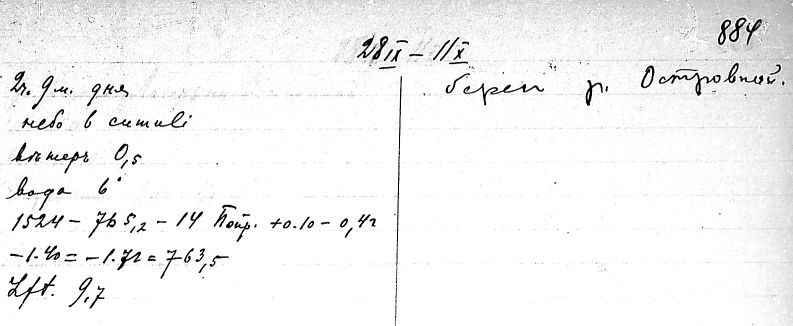 884
28 IX – 11 X
2ч. 9 м. дня
небо в cumuli
вѣтеръ 0,5
вода 6°
1524 – 765,2 – 14 Попр. +0.10 – 0,42
–1.40 = –1.72 = 763,5
Lft. 9,7
берег р. Островной.